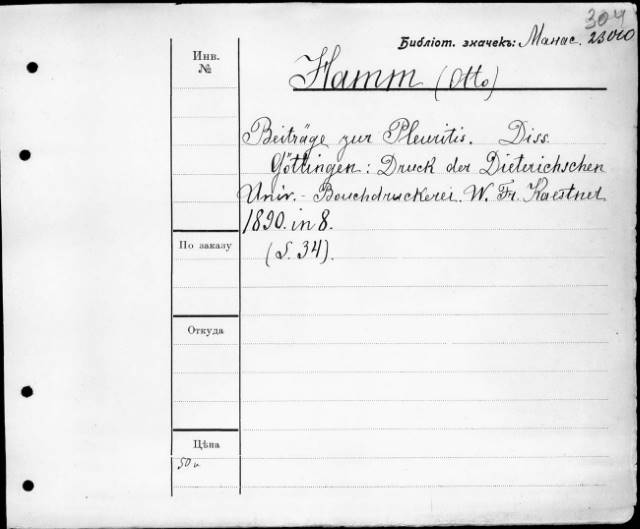 304
Библіот. значекъ: Манас. 23060
Инв.
№
Hamm (Otto)
Beiträge zur Pleuritis. Diss.
Göttingen: Druck der Dieterichschen
Univ. - Bouchdruckerei. W. Fr. Kaestner
1890. in 8.
По заказу
(S. 34).
Откуда
Цѣна
50